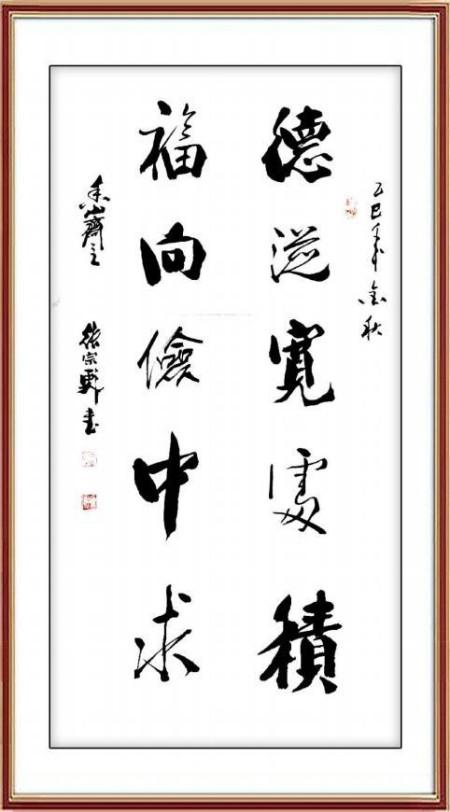 乙巳年金秋
德從寬處積
福向儉中求
香齋主 張宗軒書